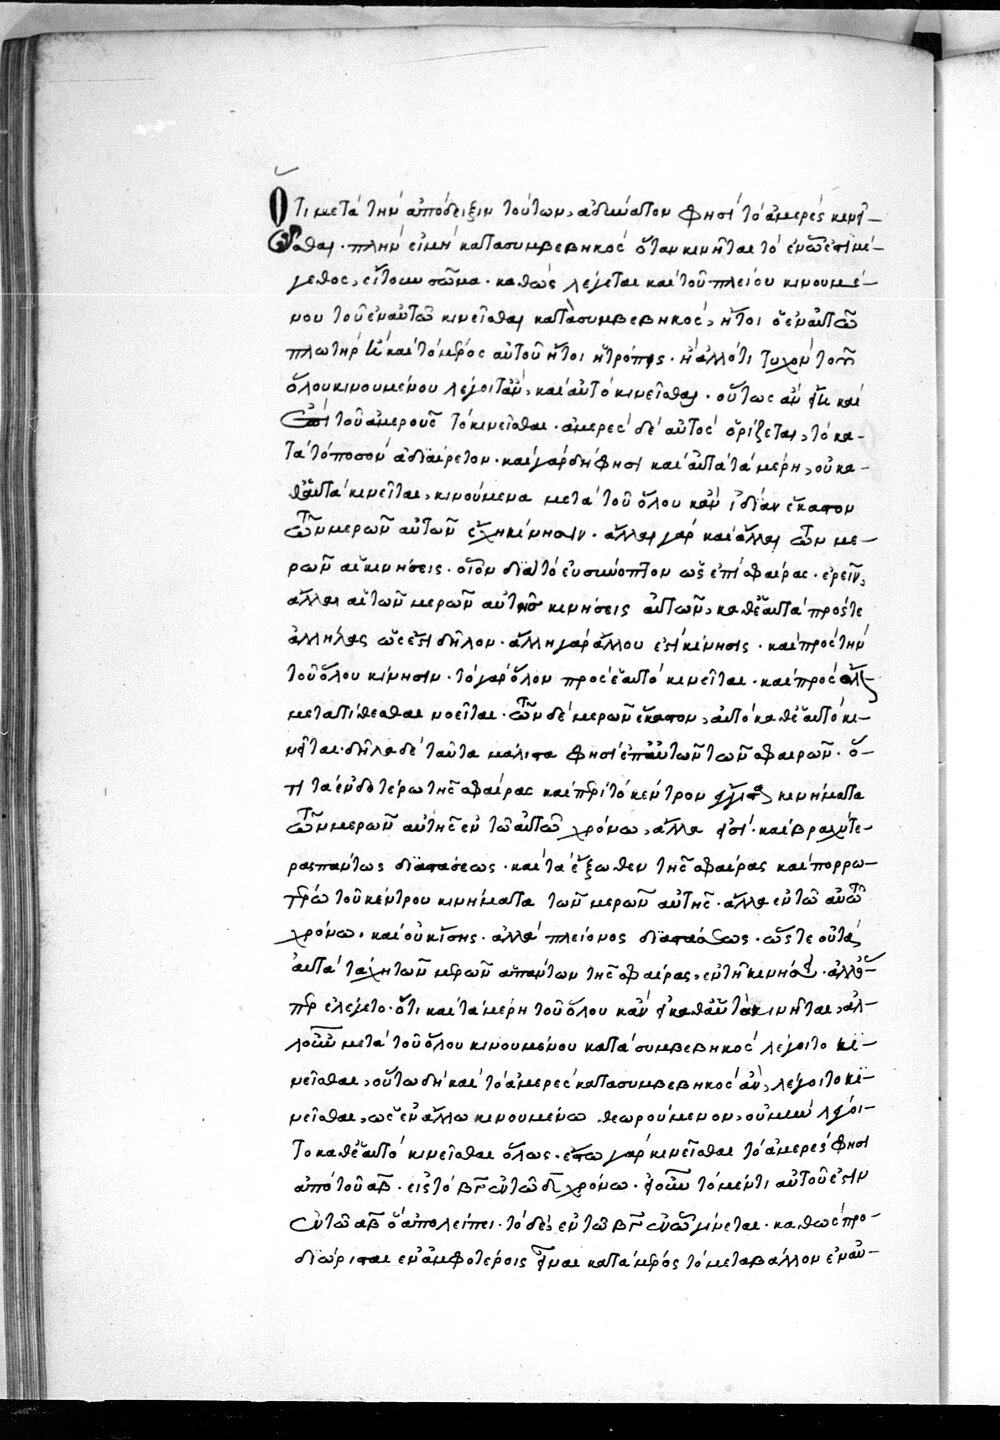 Ὅτι μετὰ τὴν ἀπόδειξιν τούτων, ἀδύνατον φησὶ τὸ ἀμερὲς κινεῖ-
σθαι· πλὴν εἰ μὴ κατὰ συμβεβηκὸς ὅταν κινῆται τὸ ἐν ᾧ ἐστὶ μέ-
γεθος, εἴτουν σῶμα· καθὼς λέγεται καὶ τοῦ πλοίου κινουμέ-
νου τοῦ ἐν αὐτῶ κινεῖσθαι κατὰ συμβεβηκὸς, ἤτοι ὁ ἐν αὐτῶ
πλωτὴρ ἢ καὶ τὸ μέρος αὐτοῦ ἤτοι ἡ τρόπις· ἢ ἄλλό τι τυχὸν τοῦ
ὅλου κινουμένου λέγοιτ ἂν, καὶ αὐτὸ κινεῖσθαι· οὕτως ἂν εἴη καὶ
ἐπὶ τοῦ ἀμεροῦς τὸ κινεῖσθαι· ἀμερὲς δὲ αὐτὸς ὁρίζεται, τὸ κα-
τὰ τὸ ποσὸν ἀδιαίρετον· καὶ γὰρ δὴ φησι καὶ αὐτὰ τὰ μέρη, οὐ κα-
θ' αὑτὰ κινεῖται, κινούμενα μετὰ τοῦ ὅλου κἂν ἰδίαν ἕκαστον
τῶν μερῶν αὐτῶν ἔχη κίνησιν· ἄλλαι γὰρ καὶ ἄλλαι τῶν με-
ρῶν αἱ κινήσεις· οἷον διὰ τὸ εὐσύνοπτον ὡς ἐπὶ σφαίρας· ἐρεῖν,
ἄλλαι αἱ τῶν μερῶν αὐτῆς κινήσεις αὐτῶν, καθ' ἑαυτὰ πρός τε
ἀλλήλας ὡς ἔστι δῆλον· ἄλλη γὰρ ἄλλου ἐστὶ κίνησις· καὶ πρὸς τὴν
τοῦ ὅλου κίνησιν· τὸ γὰρ ὅλον πρὸς ἑαυτὸ κινεῖται· καὶ πρὸς
μετατίθεσθαι νοεῖται· τῶν δὲ μερῶν ἕκαστον, αὐτὸ καθ' ἑαυτὸ κι-
νεῖται· δῆλα δὲ ταῦτα μάλιστα φησὶ ἐπ' αὐτῶν τῶν σφαιρῶν· ὅ-
τι τὰ ἐνδοτέρω τῆς σφαίρας καὶ περὶ τὸ κέντρον κινήματα
τῶν μερῶν αὐτῆς ἐν τῶ αὐτῶ χρόνω, ἄλλα εἰσί· καὶ βραχυτέ-
ρας πάντως διαστάσεως· καὶ τὰ ἔξωθεν τῆς σφαίρας καὶ πορρω-
τέρω τοῦ κέντρου κινήματα τῶν μερῶν αὐτῆς· ἄλλα ἐν τῶ αὐτῶ
χρόνω· καὶ οὐκ ἴσης· ἀλλὰ πλείονος διαστάσεως· ὥστε οὐ τὰ
αὐτὰ τάχη τῶν μερῶν ἁπάντων τῆς σφαίρας, ἐν τῆ κινήσει· ἀλλ' ὅ-
περ ἐλέγετο· ὅτι καὶ τὰ μέρη τοῦ ὅλου κἂν εἰ καθ' αὑτὰ κινῆται, ἀλ-
λ' οὖν μετὰ τοῦ ὅλου κινουμένου κατὰ συμβεβηκὸς λέγοιτο κι-
νεῖσθαι, οὕτω δὴ καὶ τὸ ἀμερὲς κατὰ συμβεβηκὸς ἂν, λέγοιτο κι-
νεῖσθαι, ὡς ἐν ἄλλω κινουμένω θεωρούμενον, οὐ μὴν λέγοι-
το καθ' ἑαυτὸ κινεῖσθαι ὅλως· ἔστω γὰρ κινεῖσθαι τὸ ἀμερὲς φησι
ἀπὸ τοῦ αβ· εἰς τὸ βγ ἐν τῶ δε χρόνω· εἰ οὖν τὸ μέν τι αὐτοῦ ἐστιν
ἐν τῶ αβ ὃ ἀπολείπει· τὸ δὲ, ἐν τῶ βγ ἐν ᾧ γίνεται· καθὼς προ-
διώρισται ἐν ἀμφοτέροις εἶναι κατὰ μέρος τὸ μεταβάλλον ἐν αὐ-